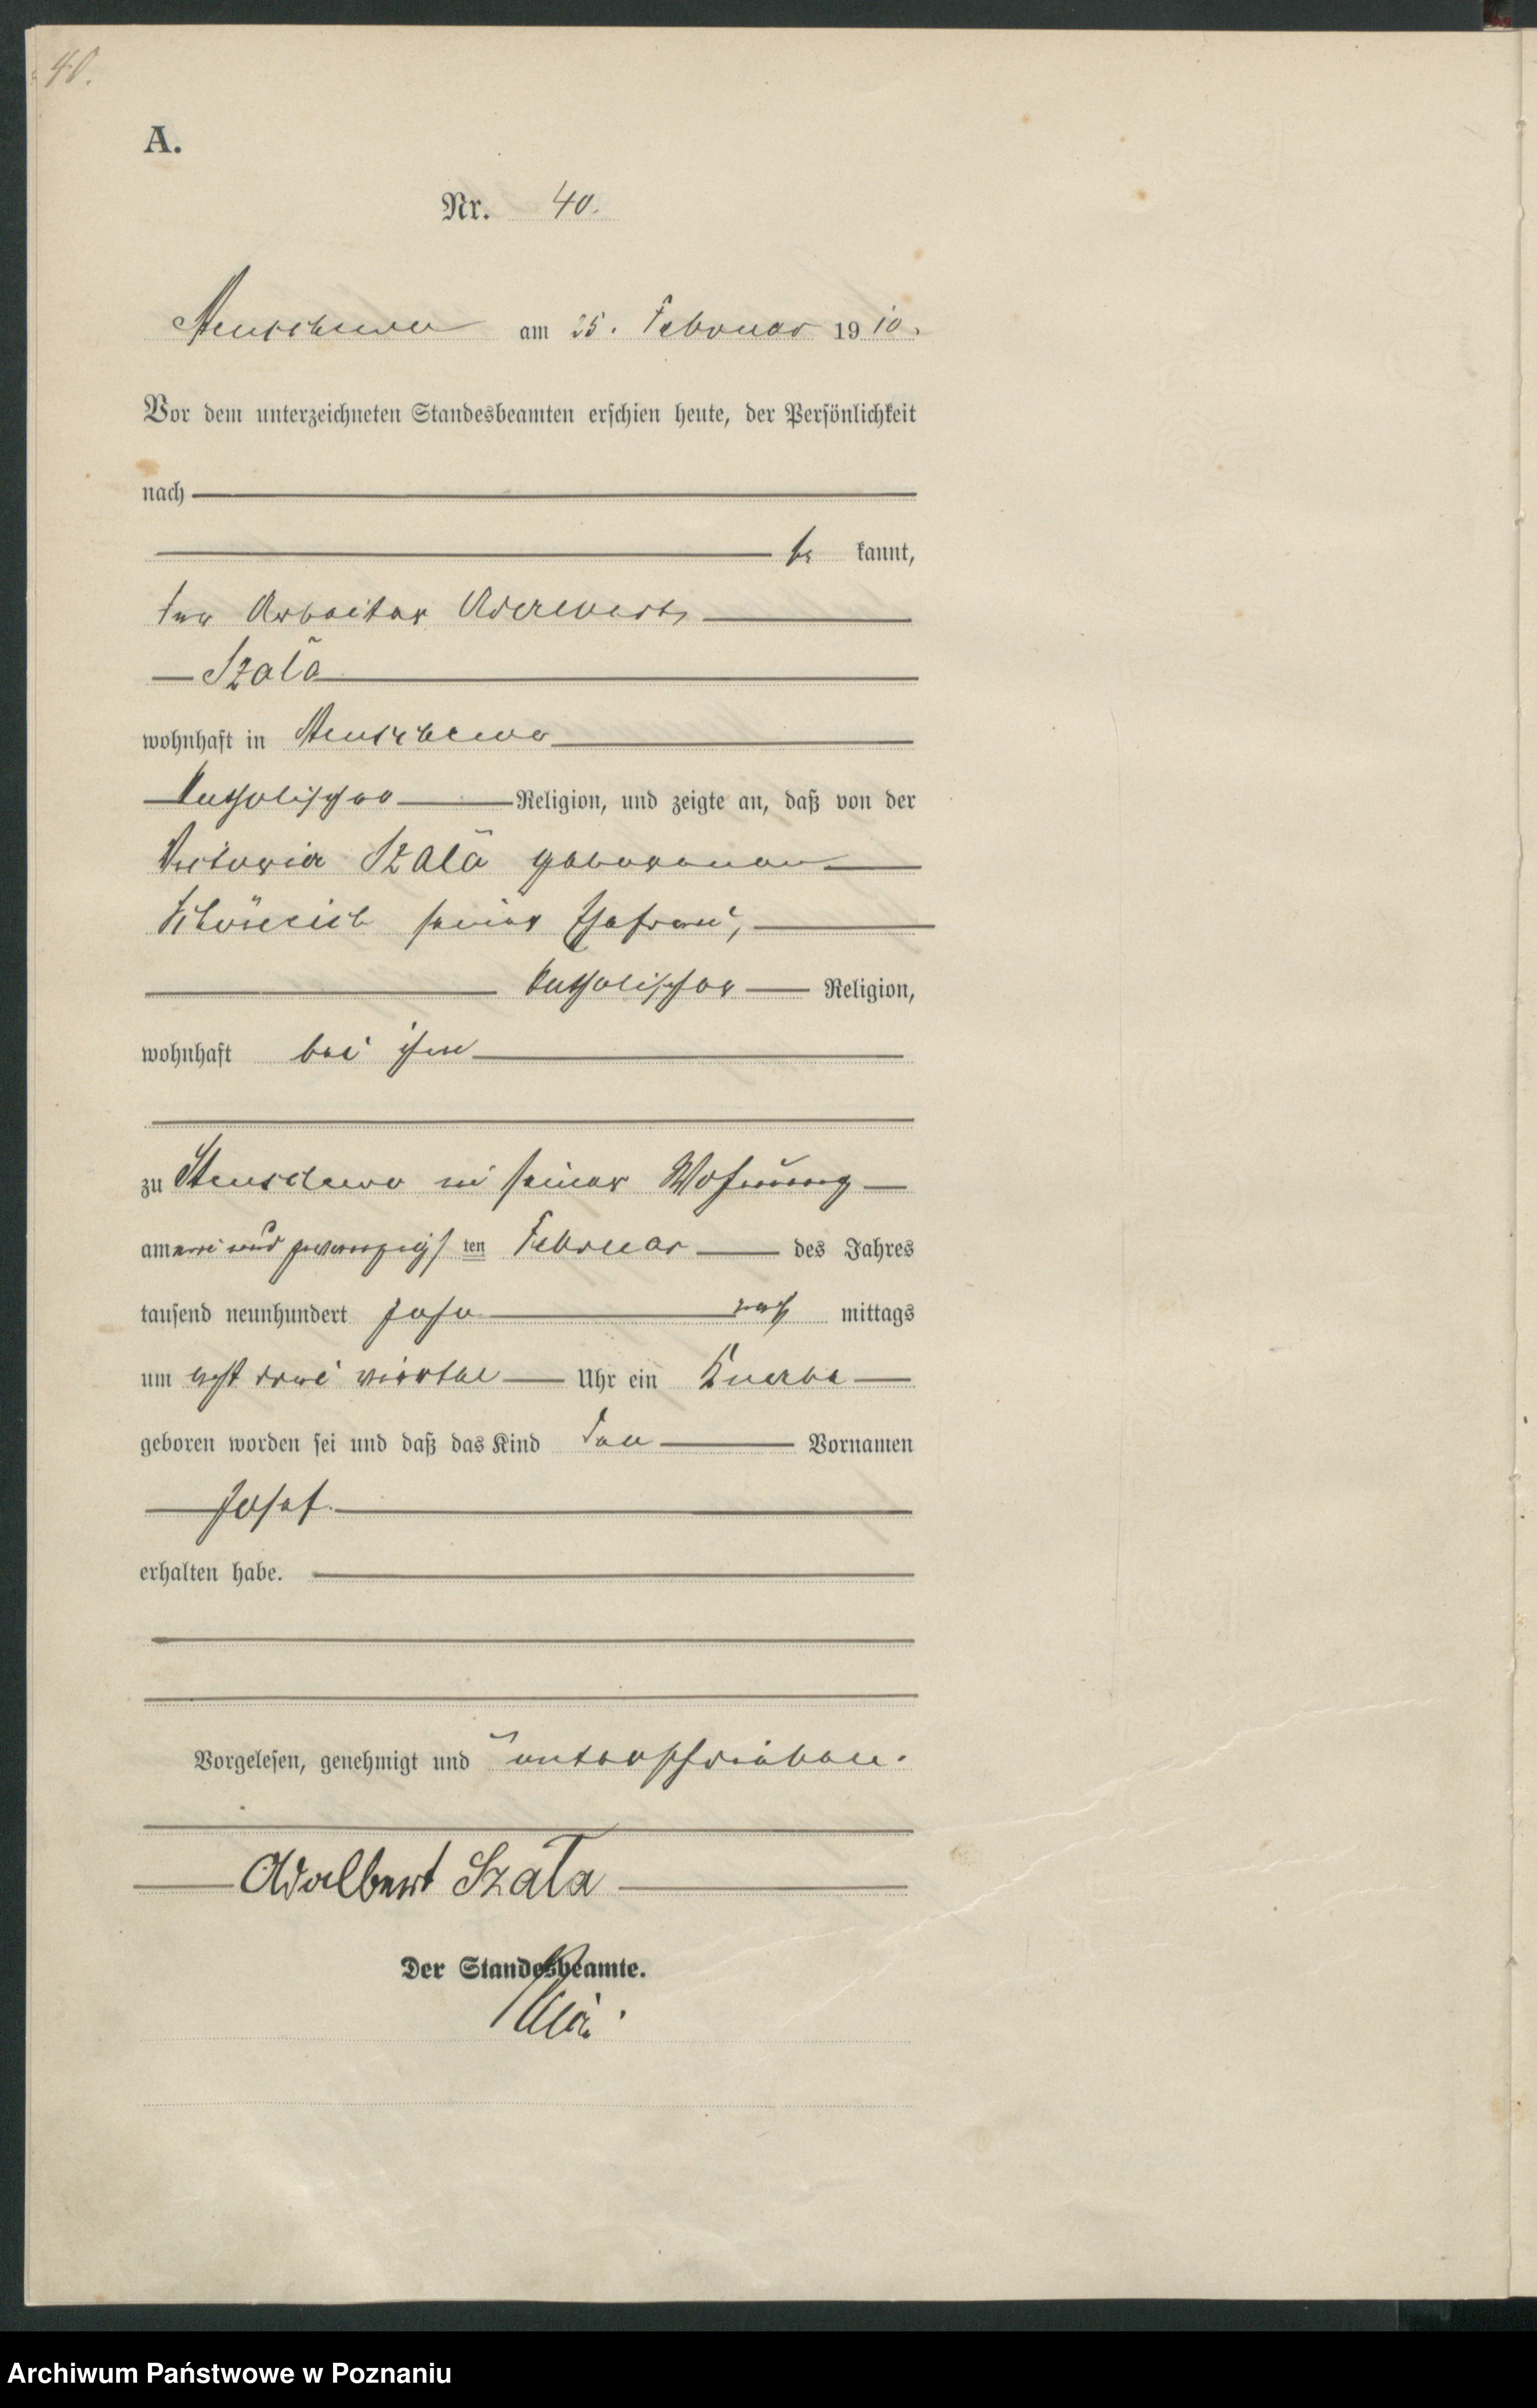 40.
A.
Nr. 40.
Stenschewo am 25. Februar 1910.
Vor dem unterzeichneten Standesbeamten erschien heute, der Persönlichkeit
nach
be kannt,
der Arbeiter Adalbert
Szała
wohnhaft in Stenschewo
katholischer Religion, und zeigte an, daß von der
Victoria Szała geborenen
seiner Ehefrau,
katholischer Religion,
wohnhaft bei ihm
zu Stenschewo in seiner Wohnung
am und zwanzigsten Februar des Jahres
tausend neunhundert zehn nach mittags
um acht drei viertel Uhr ein Knabe
geboren worden sei und daß das Kind den Vornamen
Josef.
erhalten habe.
Vorgelesen, genehmigt und unterschrieben.
Adalbert Szała
Der Standesbeamte.
Archiwum Państwowe w Poznaniu